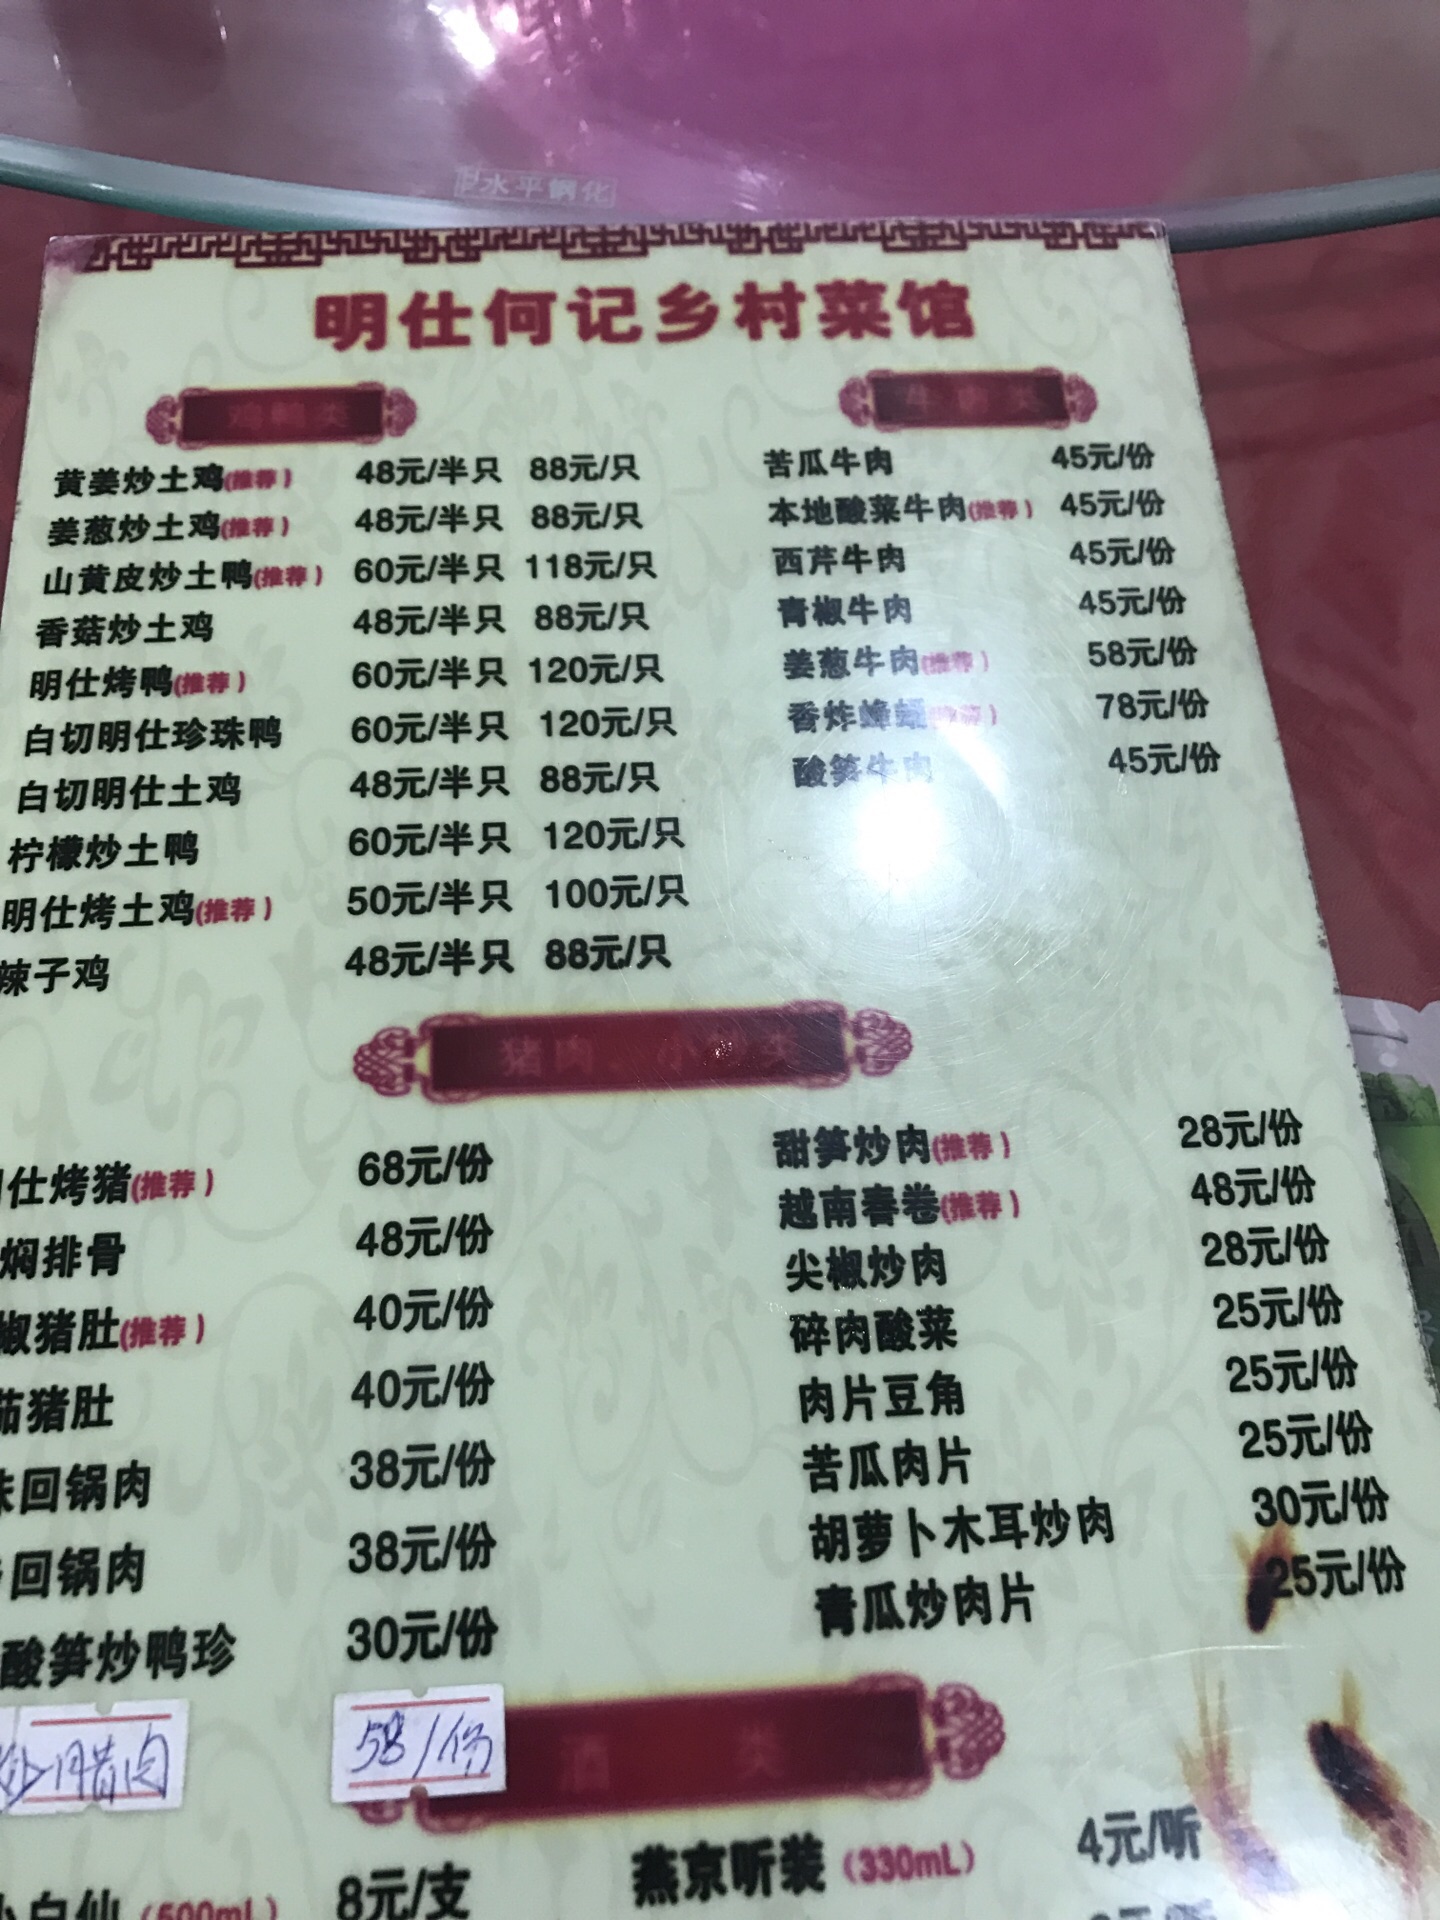 水平钢化
明仕何记乡村菜馆
鸡鸭类
黄姜炒土鸡(推荐) 48元/半只 88元/只
姜葱炒土鸡(推荐) 48元/半只 88元/只
山黄皮炒土鸭(推荐) 60元/半只 118元/只
香菇炒土鸡 48元/半只 88元/只
明仕烤鸭(推荐) 60元/半只 120元/只
白切明仕珍珠鸭 60元/半只 120元/只
白切明仕土鸡 48元/半只 88元/只
柠檬炒土鸭 60元/半只 120元/只
明仕烤土鸡(推荐) 50元/半只 100元/只
辣子鸡 48元/半只 88元/只
苦瓜牛肉 45元/份
本地酸菜牛肉(推荐) 45元/份
西芹牛肉 45元/份
青椒牛肉 45元/份
姜葱牛肉(推荐) 58元/份
香炸蜂蛹(推荐) 78元/份
酸笋牛肉 45元/份
猪肉、小炒类
仕烤猪(推荐) 68元/份
焖排骨 48元/份
椒猪肚(推荐) 40元/份
茄猪肚 40元/份
回锅肉 38元/份
回锅肉 38元/份
酸笋炒鸭珍 30元/份
腊肉 58/份
甜笋炒肉(推荐) 28元/份
越南春卷(推荐) 48元/份
尖椒炒肉 28元/份
碎肉酸菜 25元/份
肉片豆角 25元/份
苦瓜肉片 25元/份
胡萝卜木耳炒肉 30元/份
青瓜炒肉片 25元/份
酒类
小白仙(500mL) 8元/支
燕京听装(330mL) 4元/听